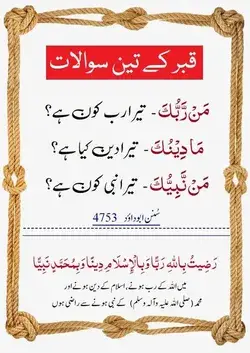 قبر کے تین سوالات
مَنْ رَّبُّكَ - تیرا رب کون ہے؟
مَا دِيْنُكَ - تیرا دین کیا ہے؟
مَنْ نَّبِيُّكَ - تیرا نبی کون ہے؟
سُنن ابوداؤد 4753
رَضِيتُ بِاللهِ رَبًّا وَبِالْإِسْلَامِ دِينًا وَبِمُحَمَّدٍ نَبِيًّا
میں اللہ کے رب ہونے، اسلام کے دین ہونے اور
محمد (صلی اللہ علیہ وآلہ وسلم) کے نبی ہونے سے راضی ہوں